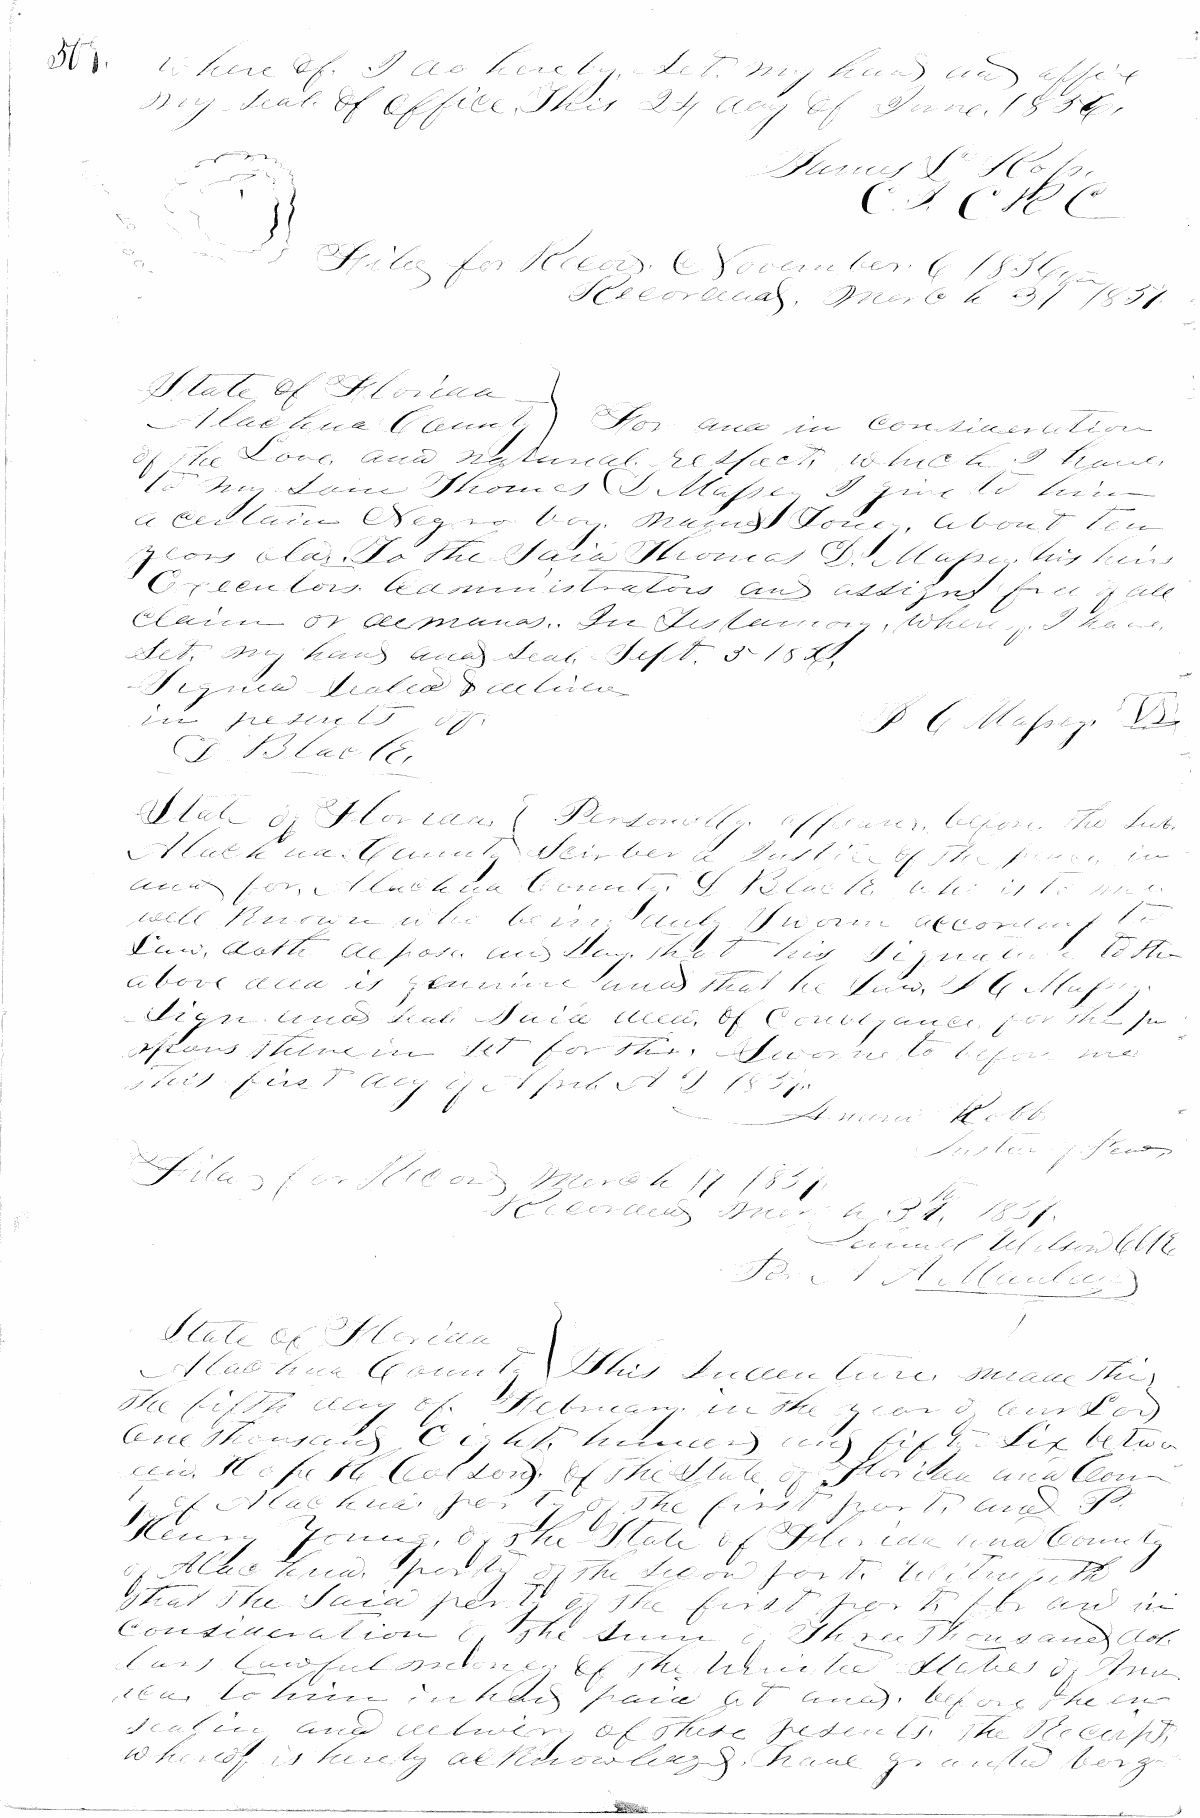 where of. I do hereby. Set. my hand and affix
my Seal. Of Office. This 24 day Of June. 1856.
C. C. C
Filed for Record. November. 6 1856
Recorded. March 31 1857.
State Of Florida
Alachua County For and in consideration
of the Love. and natural. respect, which I have.
to my Thomas D Massey I give to him
a certain Negro boy. named Toney. About ten
years old. To the Said Thomas D. Massey his heirs
Executors. Administrators and assigns free of all
claim or demands. In Testamony. Where of. I have.
Set. my hand and Seal. Sept. 5
Signed Sealed & deliver
in pesents of.
G Massey.
Black.
State of Florida. Personally. appeared. before. the Sub.
Alachua. County Scirber a Justice of the peace, in
and for. Alachua County. Black. who is to me
well Known who being duly Sworn according to
Law. doth depose and Say. that his Signature to the
above deed is genuine and that he Saw. G Massey
Sign and Seal Said deed. Of Conveyance. for the pu
therein Set for the. Sworne to before me
this first day of April A D 1857.
Robb
Justice of Peace
Filed for Record March 17 1857.
Recorded March 31. 1857.
Samuel Wilson
Per A
State of Florida
Alachua County This Indenture. made this
the fifth day of. February. in the year of our Lord
One Thousand Eight. hundred and fifty Six betwe
een. Of the State of Florida and Coun
ty of Alachua. party of the first part, and P.
Henry Young, of the State of Florida and County
of Alachua. party of the Second part. Witnesseth
that the Said party of the first part, for and in
consideration of the Sum of Three Thousand dol
lars lawful money Of the United States of Ame
rica. to him in hand paid at and. before the en
sealing and delivery of these pesents. the Receipt,
whereof is hereby acknowledged. have granted barg